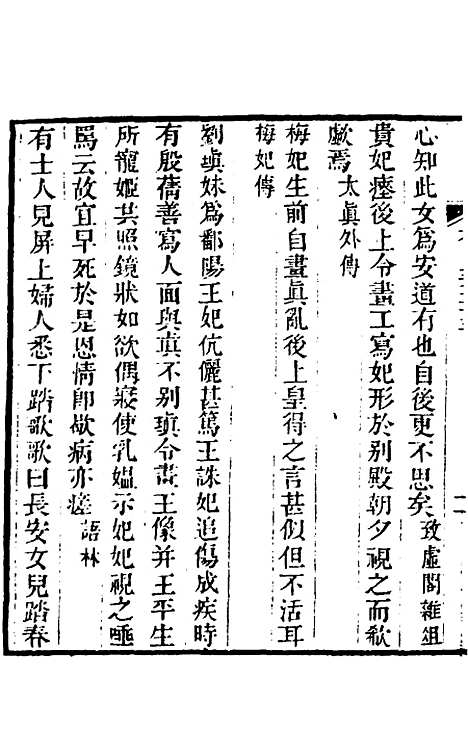 心知此女爲安道有也自後更不思矣致虛閣雜俎
貴妃瘞後上令畫工寫妃形於別殿朝夕視之而欷
歔焉太眞外傳
梅妃生前自畫眞亂後上皇得之言甚似但不活耳
梅妃傳
劉瑱妹爲鄱陽王妃伉儷甚篤王誅妃追傷成疾時
有殷蒨善寫人面與眞不別瑱令畫王像并王平生
所寵姬共照鏡狀如欲偶寢使乳媼示妃妃視之唾
罵云故宜早死於是恩情卽歇病亦瘥語林
有士人見屏上婦人悉下踏歌歌曰長安女兒踏春